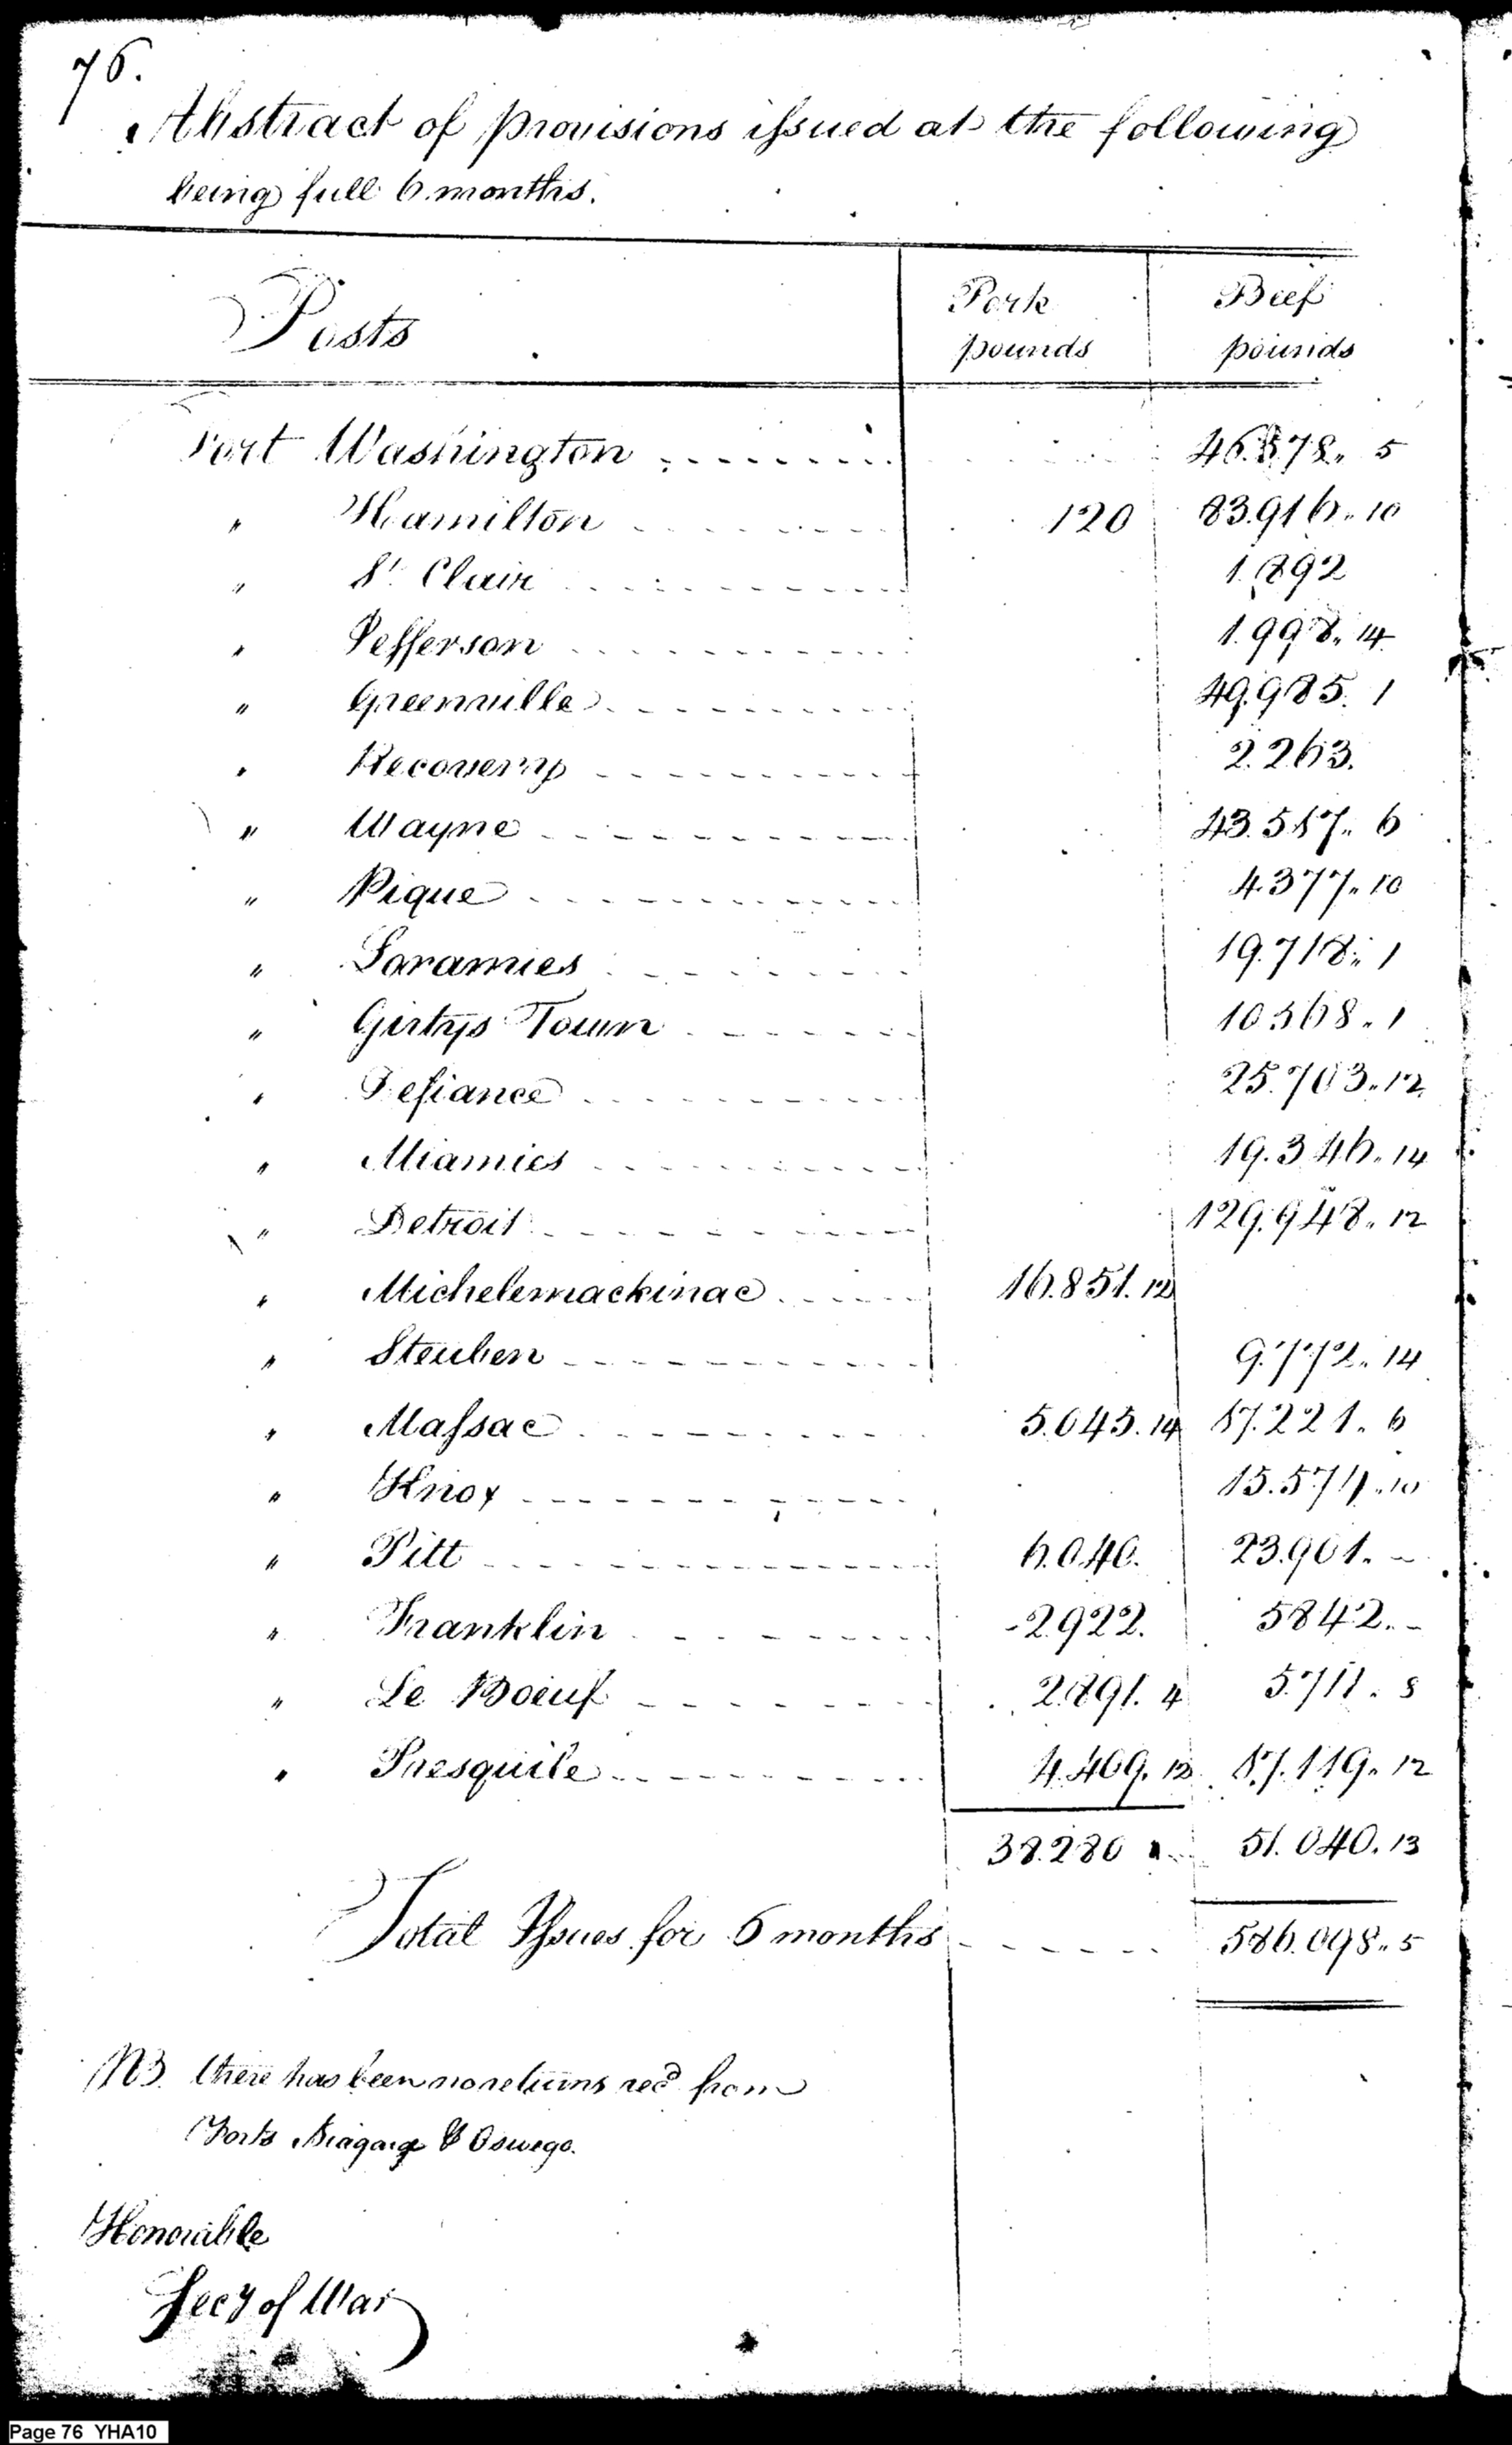 76.
Abstract of provisions issued at the following
being full 6 months.
Posts Pork pounds Beef pounds
Fort Washington 46.578,, 5
" Hamilton 120 83.916,, 10
" St Clair 1.892
" Jefferson 1.998,, 14
" Greenville 49.985. 1
" Recovery 2.263.
" Wayne 43.517,, 6
" Pique 4.377,, 10
" Loramies 19.718,, 1
" Girtys Town 10568,, 1
" Defiance 25.703,, 12
" Miamies 19.346,, 14
" Detroit 129.948,, 12
" Michelemackinac 16.851. 12
" Steuben 9.772,, 14
" Massac 5.045. 14 17.221,, 6
" Knox 15.574,, 10
" Pitt 6.040. 23.901,, -
" Franklin 2922. 5842. -
" Le Boeuf 2.891. 4 5.711,, 8
" Presquile 4.409. 12 17.119,, 12
38.280 51.040. 13
Total Issues for 6 months 586.098,, 5
NB. there has been no returns recd from
Forts Niagara & Oswego.
Honorable
Secy of War
Page 76 YHA10